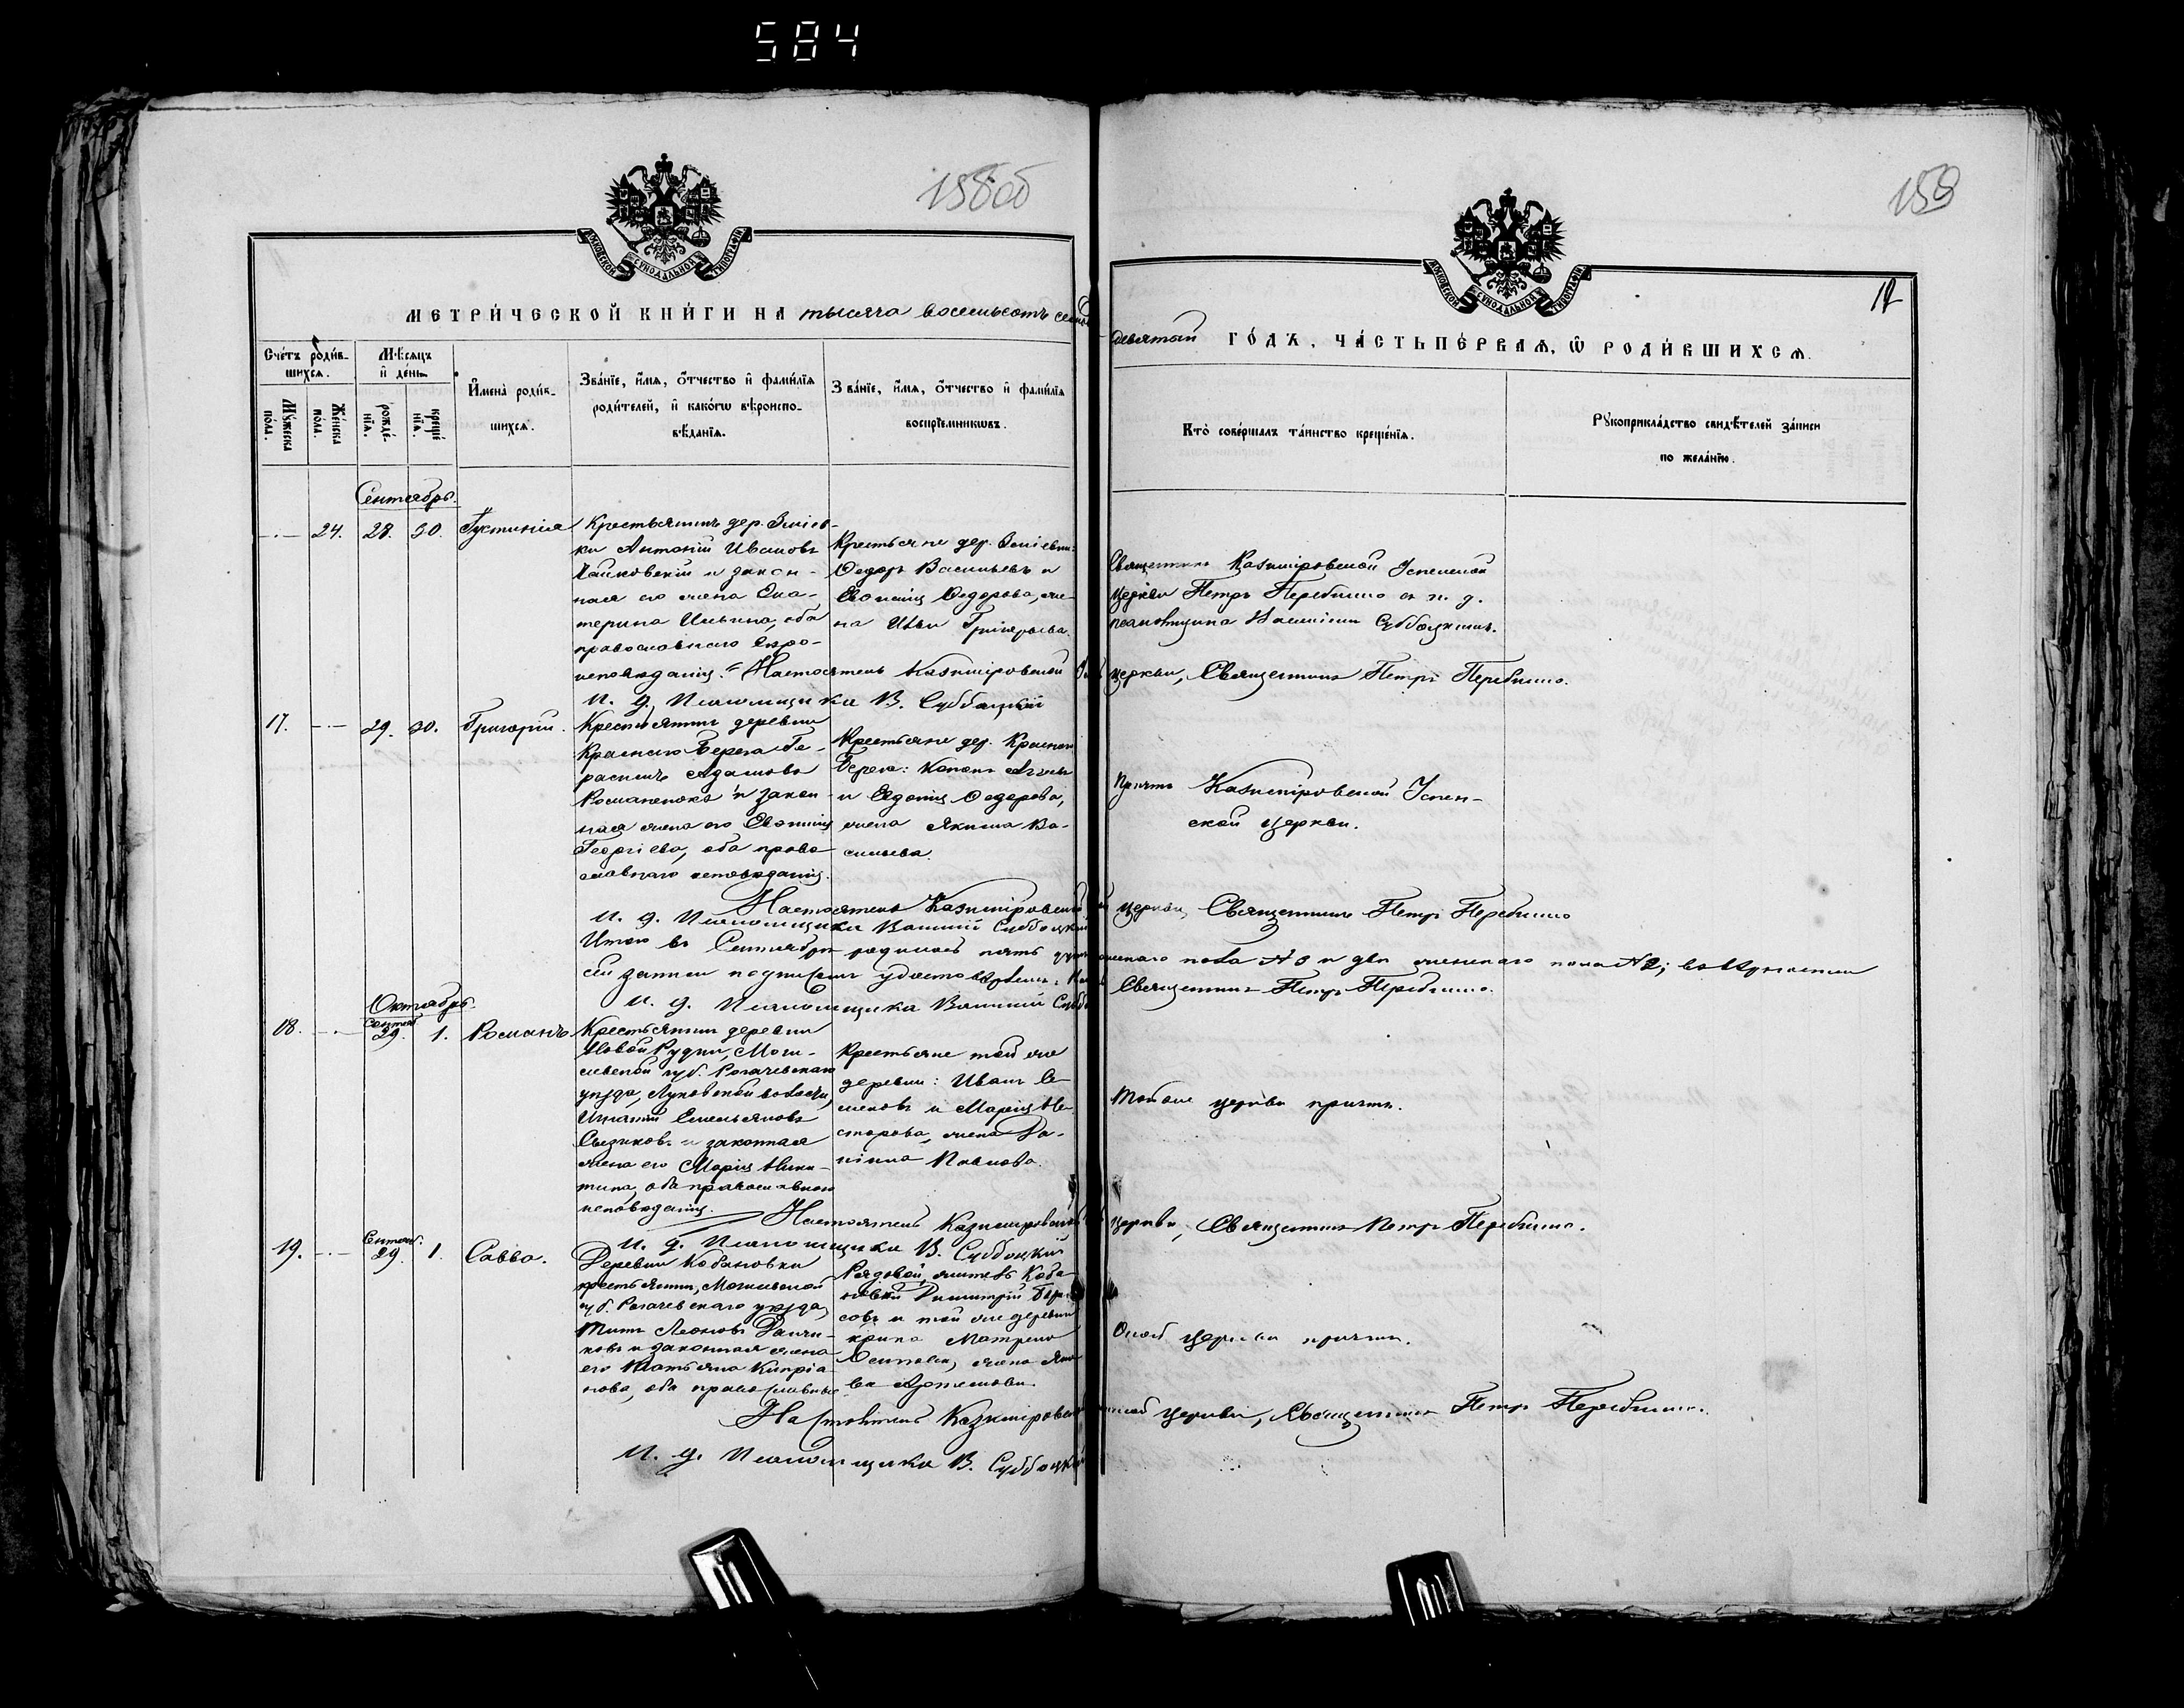 584
158об
159
МОСКОВСКОЙ СѴНОДАЛЬНОЙ ТИПОГРАФІИ
МОСКОВСКОЙ СѴНОДАЛЬНОЙ ТИПОГРАФІИ
МЕТРИ́ЧЕСКОЙ КНИ́ГИ НА тысяча восемьсотъ
девятый ГО́ДЪ, ЧА́СТЬ ПЕ́РВАѦ, Ѡ РОДИ́ВШИХСѦ.
Сче́тъ роди́в-
шихсѧ.
Мꙋ́жеска
по́ла.
Же́нска
по́ла.
Мѣ́сѧцъ
и҆ де́нь.
рожде́-
нїѧ.
креще́
нїѧ.
И҆мена̀ роди́в-
шихсѧ.
Зва́нїе, и҆́мѧ, ѻ҆́тчество и҆ фами́лїѧ
роди́телей, и҆ како́гѡ вѣроиспо-
вѣ́данїѧ.
Зва́нїе, и҆́мѧ, ѻ҆́тчество и҆ фами́лїѧ
воспрїе́мникѡвъ.
Кто̀ соверша́лъ та́инство креще́нїѧ.
Рꙋкоприкла́дство свидѣ́телей за́писи
по жела́нїю.
Сентябрь.
24. 28. 30. Густинія
Крестьянинъ дер. Зміев-
ки Антоній Ивановъ
и закон-
ная его жена Ека-
терина Ильина, оба
православнаго веро-
исповѣданія.
Крестьяне дер. Зміевки:
Ѳедоръ Васильевъ и
Евфимія Ѳедорова, же-
на Ильи Григорьева.
Священникъ Казимировской Успенской
церкви Петръ съ и. д.
псаломщика Василіемъ Субботцкимъ.
Настоятель Казимировской церкви, Священникъ Петръ
И. д. Псаломщика В. Субботцкій
17. 29. 30. Григорій.
Крестьянинъ деревни
Краснаго Берега Ге-
расимъ Адамовъ
Романенокъ и закон-
ная жена его Евфимія
Георгіева, оба право
славнаго исповѣданія.
Крестьяне дер. Краснаго
Берега: Кононъ
и Евдокія Ѳедорова,
жена Якима Ва-
сильева.
Причтъ Казимировской Успен-
ской церкви.
Настоятель Казимировской церкви, Священникъ Петръ
И. д. Псаломщика Василій Субботцкій
Итого въ Сентябрѣ родилось пять мужескаго пола и две женскаго пола № 2; въ вѣрности
сей записи подписомъ удостовѣряемъ: Священникъ Петръ
И. д. Псаломщика Василій
Октябрь.
18. Сентяб. 29. 1. Романъ
Крестьянинъ деревни
Новой Рудни, Моги-
левской губ. Рогачевскаго
уѣзда, Луковской волости,
Игнатій Емельяновъ
и законная
жена его Марія Ники-
тина, оба православнаго
исповѣданія.
Крестьяне той же
деревни: Иванъ Се-
меновъ и Марія Не-
сторова, жена Да-
ніила Павлова.
Тойже церкви причтъ.
Настоятель Казимировской церкви, Священникъ Петръ
И. д. Псаломщика В. Субботцкій
19. Сентяб. 29. 1. Савва.
Деревни Кабановки
крестьянинъ, Могилевской
губ. Рогачевскаго уѣзда,
Титъ Леоновъ
и законная жена
его Татьяна Кипріа-
нова, оба православные
Рядовой, житель Каба-
новки Димитрій Бори-
совъ и той же деревни
Матрена
Осипова, жена Яко-
ва Артемова.
Оной церкви причтъ.
Настоятель Казимировской церкви, Священникъ Петръ
И. д. Псаломщика В. Субботцкій